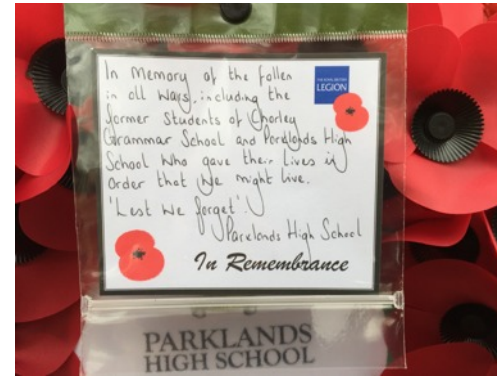 In Memory of the fallen
in all Wars, including the
former students of Chorley
Grammar School and Parklands High
School who gave their lives in
order that we might live.
'Lest we forget'.
Parklands High School
THE ROYAL BRITISH
LEGION
In Remembrance
PARKLANDS
HIGH SCHOOL